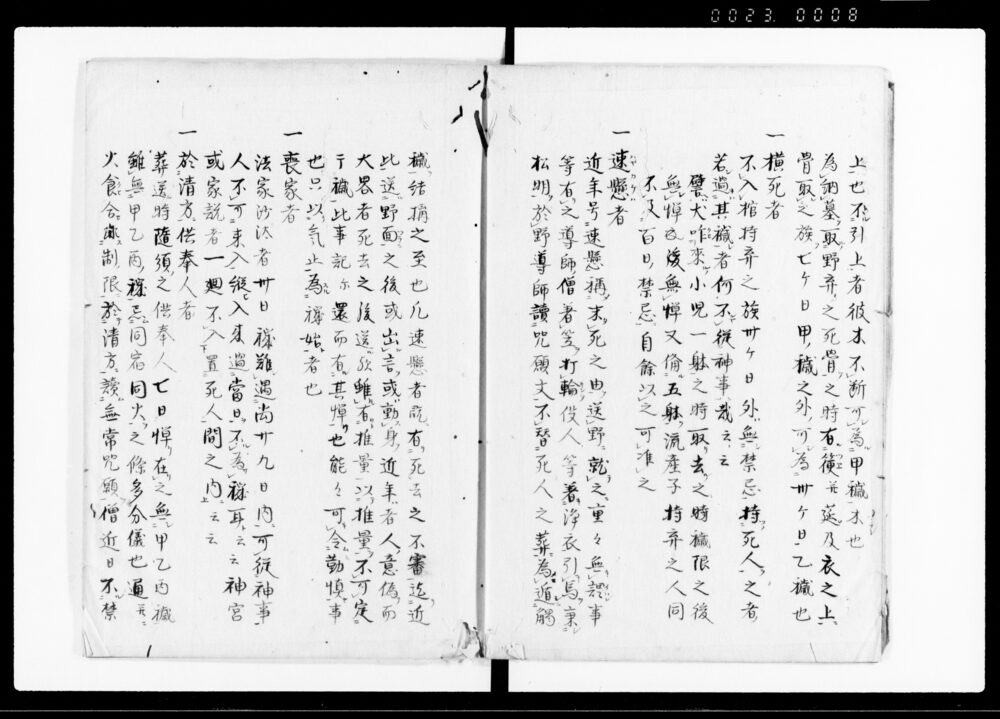 0023. 0008
上也不引上者彼木不断可為甲穢木也
為納墓取野弃之死骨之時者籏并莚及衣之上
骨取之族七ケ日甲穢之外可為卅ケ日乙穢也
一
横死者
不入棺持弃之族卅ケ日外無禁忌持死人之者
若過其穢者何不従神事哉云云
譬犬咋来小児一躰之時取去之時穢限之後
無憚又後無憚又備五躰流産子持弃之人同
不及百日禁忌自餘以之可准之
一
速懸者
近年号速懸称未死之由送野就之重々無證事
等有之導師僧着笠打輪役人等著浄衣引馬秉
松明於野導師讀咒願文不替死人之葬為遁觸
穢結構之至也凡速懸者雖有死去之不審近
此送野面之後或出言或動身近年者人意偽而
大畧者死去之後送所雖有推量以推量不可定
于穢此事記尓還而有其憚也能々可令勤慎事
也只以气止為穢始者也
一
喪家者
法家沙汰者卅日穢雖過尚廿九日内可従神事
人不可来入縦入来過當日不為穢耳云云神宮
或家説者一廻不入置死人間之内云云
一
於清方供奉人者
葬送時隨須之供奉人七日憚在之無甲乙丙穢
雖無甲乙丙穢忌同宿同火之條多分儀也通并
火食合無制限於清方讀無常咒願僧近日不禁